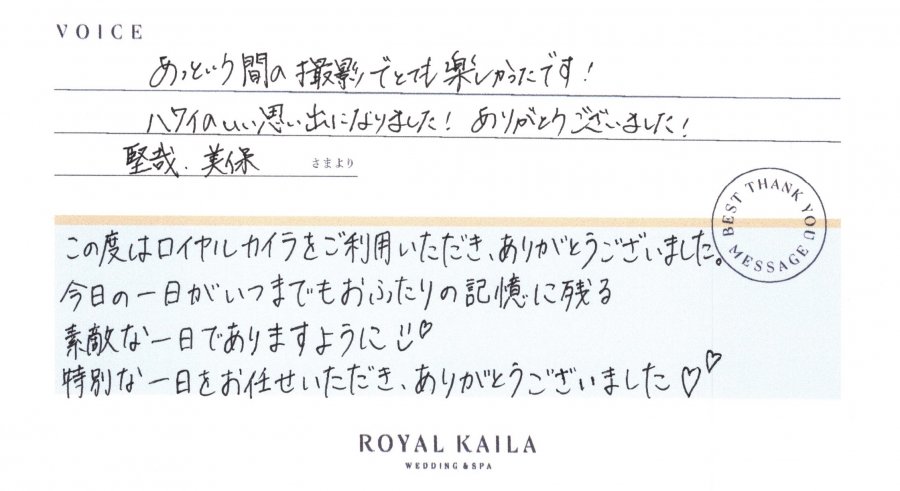 VOICE
あっという間の撮影でとても楽しかったです!
ハワイのいい思い出になりました! ありがとうございました!
堅哉、美保 さまより
BEST THANK YOU MESSAGE
この度はロイヤルカイラをご利用いただき、ありがとうございました。
今日の一日がいつまでもおふたりの記憶に残る
素敵な一日でありますように
特別な一日をお任せいただき、ありがとうございました♡♡
ROYAL KAILA
WEDDING & SPA